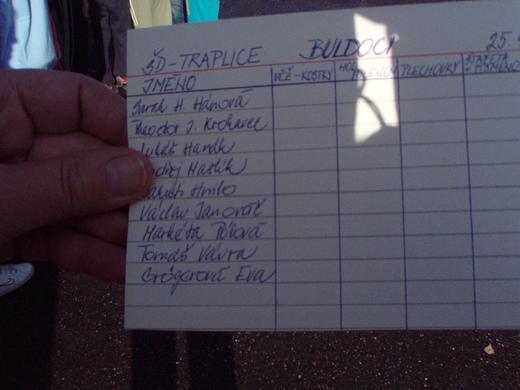 ŠD-TRAPLICE BULDOCI 25.
JMÉNO VĚŽ-KOSTKY PLECHOVKY
Jarek H. Hánová
Theodor J. Krchavec
Lukáš Hanák
Ondřej Mašlík
Jakub Hnilo
Václav Janováč
Markéta Pólová
Tomáš Vávra
Grögerová Eva